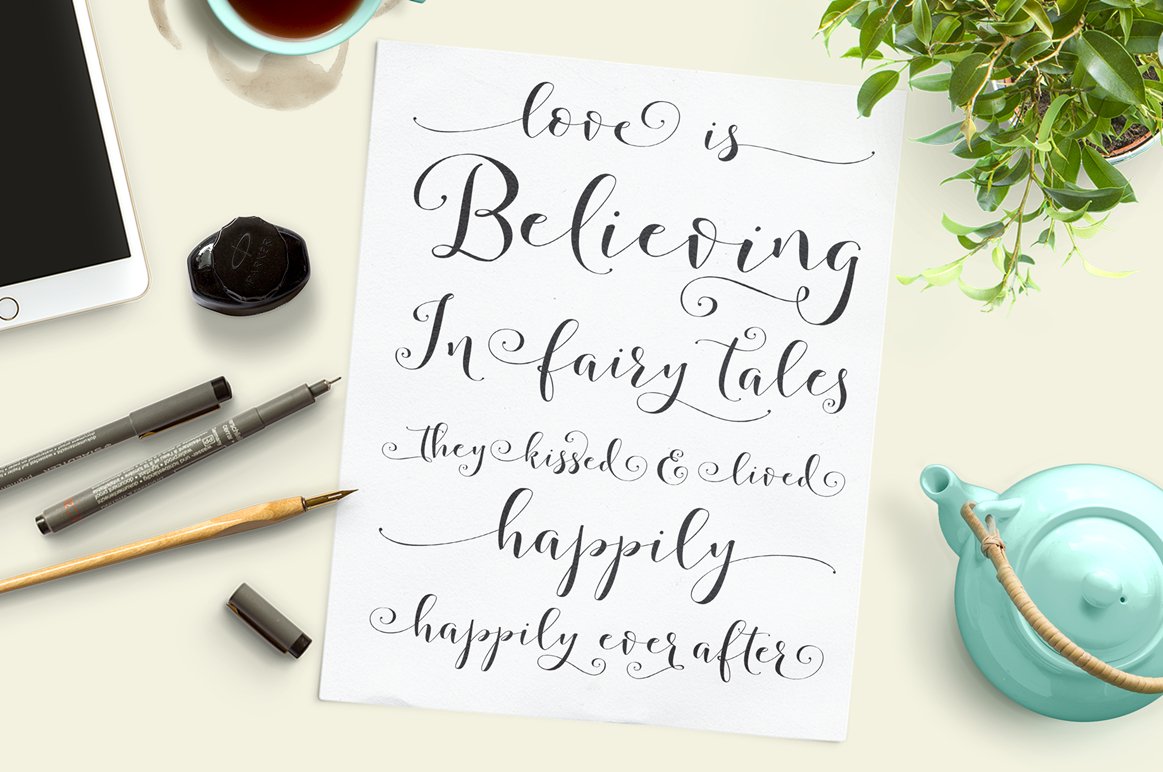 love is
Believing
In fairy tales
they kissed & lived
happily
happily ever after
PARKER